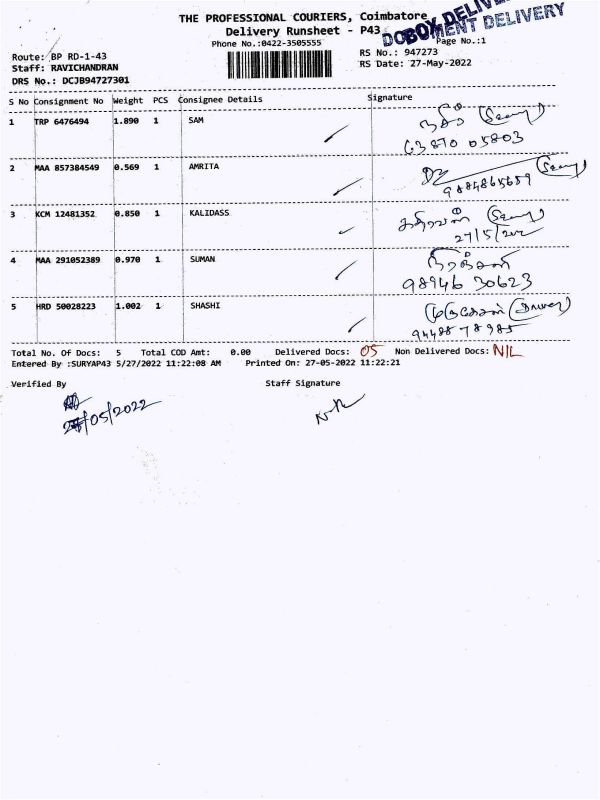 THE PROFESSIONAL COURIERS, Coimbatore
BOX DELIVE
DOCUMENT DELIVERY
Delivery Runsheet - P43
Phone No.:0422-3505555
Page No.:1
Route: BP RD-1-43
RS No.: 947273
Staff: RAVICHANDRAN
RS Date: 27-May-2022
DRS No.: DCJB94727301
S No Consignment No Weight PCS Consignee Details Signature
1 TRP 6476494 1.890 1 SAM
2 MAA 857384549 0.569 1 AMRITA
9884865659
3 KCM 12481352 0.850 1 KALIDASS கதிரவன்
27/5/202
4 MAA 291052389 0.970 1 SUMAN நிரஞ்சனி
98946 30623
5 HRD 50028223 1.002 1 SHASHI முருகேசன் (Driver)
94488 78985
Total No. Of Docs: 5 Total COD Amt: 0.00 Delivered Docs: 05 Non Delivered Docs: NIL
Entered By :SURYAP43 5/27/2022 11:22:08 AM Printed On: 27-05-2022 11:22:21
Verified By Staff Signature
/05/2022